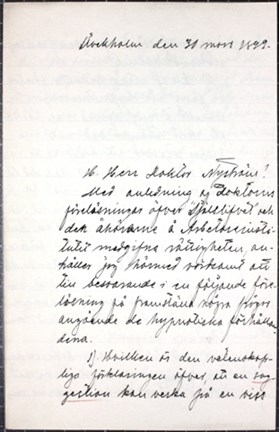 Stockholm den 30 mars 1899.
H. Herr Doktor Nyström!
Med anledning af Doktorns
föreläsningar öfver "Själslifvet" och
det åhörarne å Arbetareinsti-
tutet medgifna rättigheten, an-
håller jag härmed vördsamt att
till besvarande i en följande före-
läsning på framställa några frågor
angående de hypnotiska förhållan-
dena.
1) Hvilken är den vetenskap-
liga förklaringen öfver, att en sug-
gestion kan verka på en viss